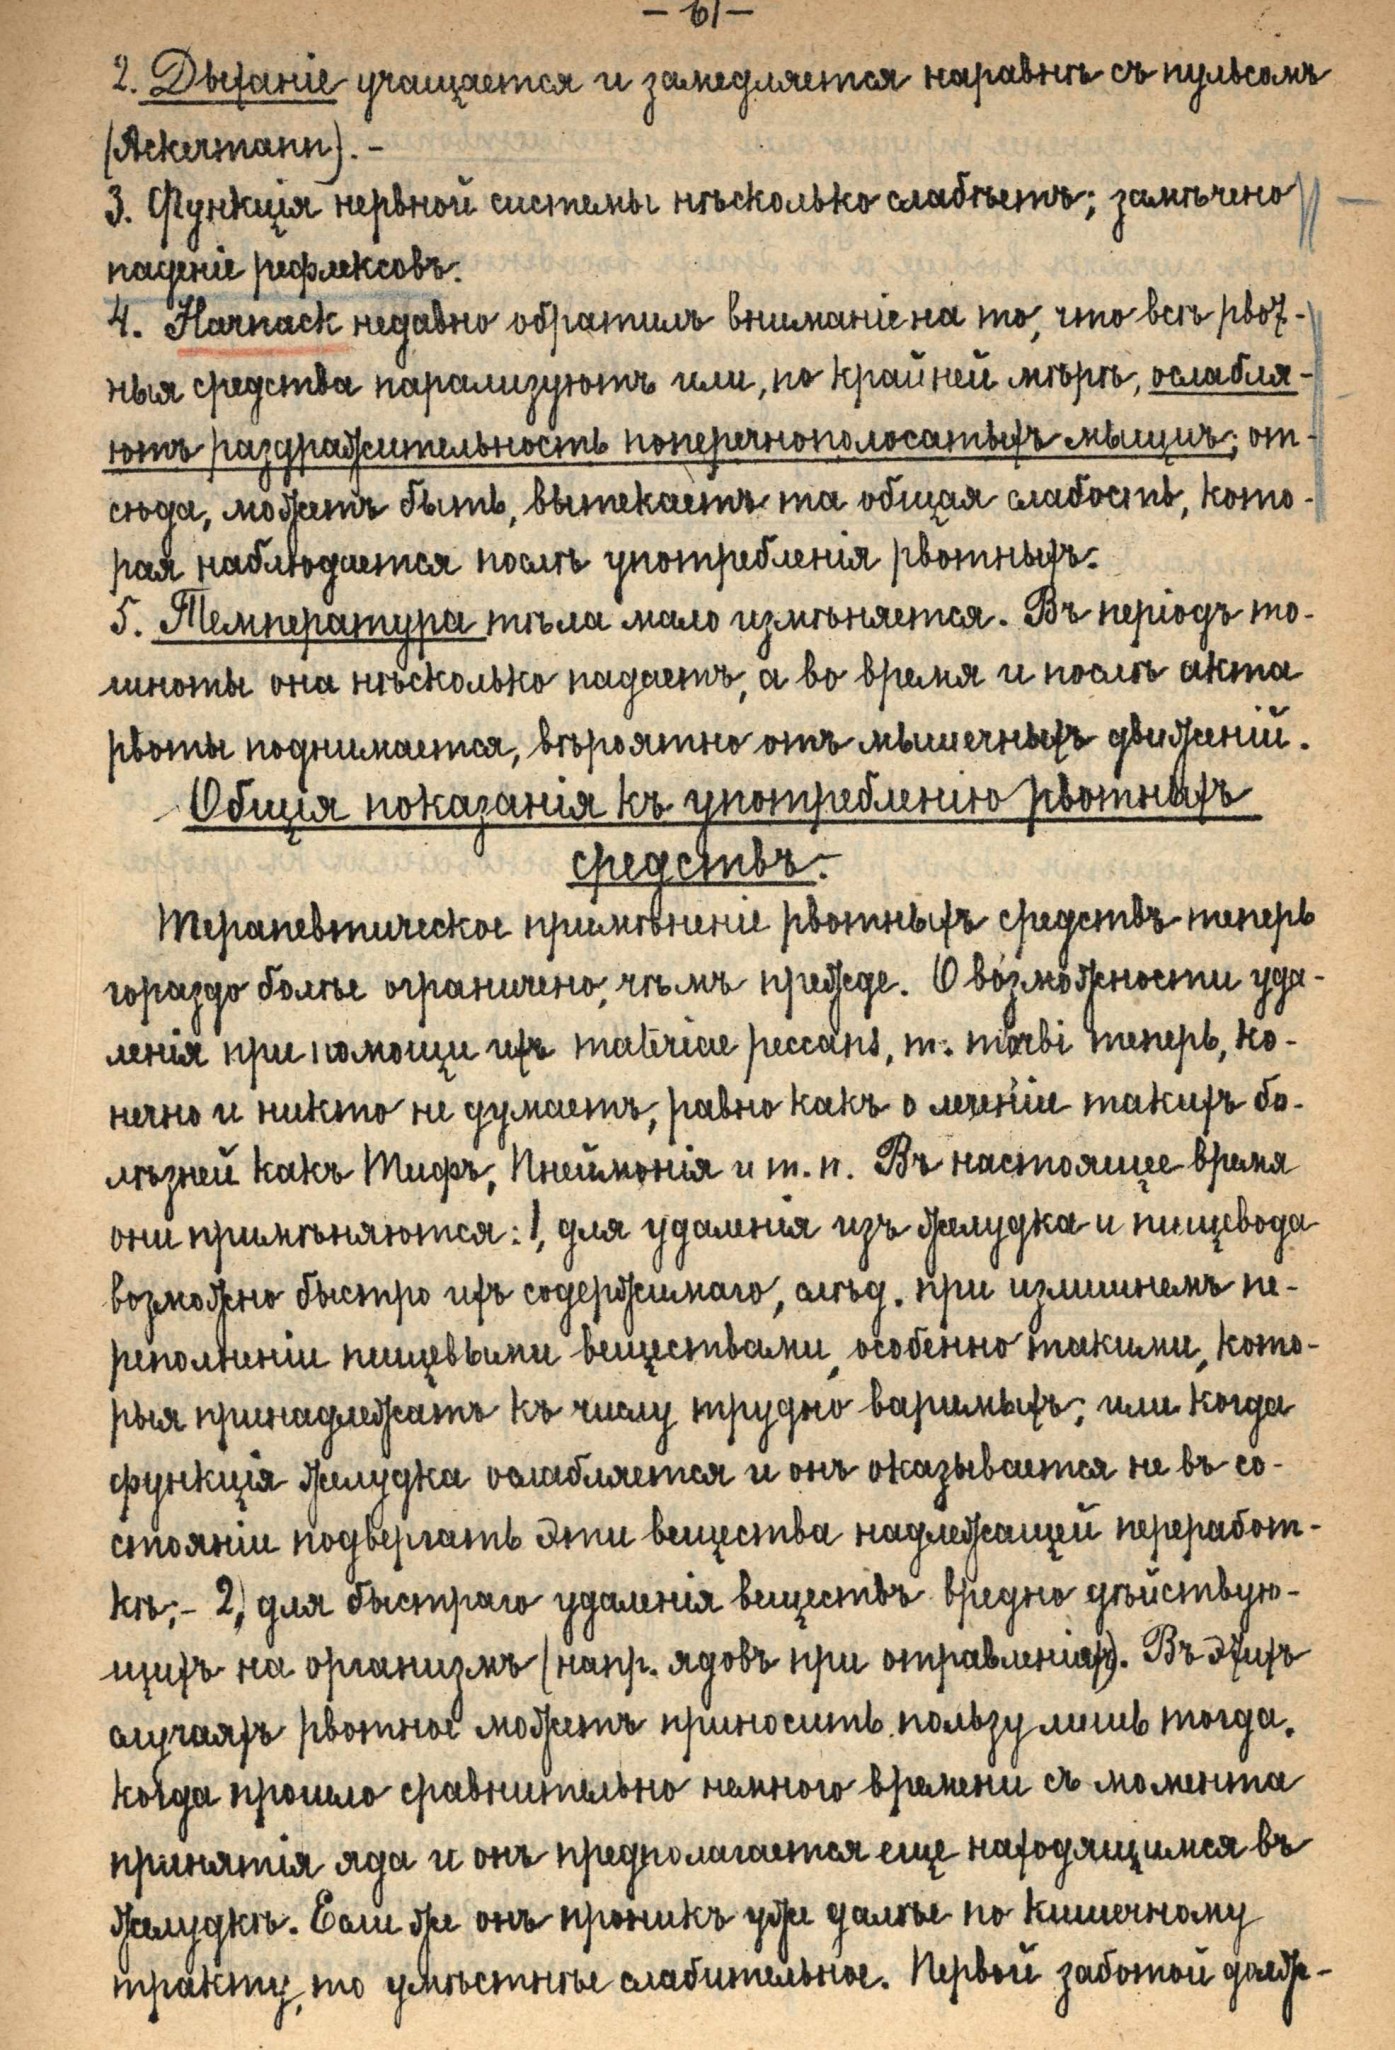 — 61 —
2. Дыханіе учащается и замедляется наравнѣ съ пульсомъ
(Ackermann). –
3. Функція нервной системы нѣсколько слабѣетъ; замѣчено
паденіе рефлексовъ.
4. Harnack недавно обратилъ вниманіе на то, что всѣ рвот-
ныя средства парализуютъ или, по крайней мѣрѣ, ослабля-
ютъ раздражительность поперечнополосатыхъ мышцъ; от-
сюда, можетъ быть, вытекаетъ та общая слабость, кото-
рая наблюдается послѣ употребленія рвотныхъ.
5. Температура тѣла мало измѣняется. Въ періодъ то-
шноты она нѣсколько падаетъ, а во время и послѣ акта
рвоты поднимается, вѣроятно отъ мышечныхъ движеній.
Общія показанія къ употребленію рвотныхъ
средствъ.
Терапевтическое примѣненіе рвотныхъ средствъ теперь
гораздо болѣе ограничено, чѣмъ прежде. О возможности уда-
ленія при помощи ихъ materiae peccans, m. morbi теперь, ко-
нечно и никто не думаетъ, равно какъ о леченіи такихъ бо-
лѣзней какъ Тифъ, Пнеймонія и т. п. Въ настоящее время
они примѣняются: 1, для удаленія изъ желудка и пищевода
возможно быстро ихъ содержимаго, слѣд. при излишнемъ пе-
реполненіи пищевыми веществами, особенно такими, кото-
рыя принадлежатъ къ числу трудно варимыхъ; или когда
функція желудка ослабляется и онъ оказывается не въ со-
стояніи подвергать эти вещества надлежащей переработ-
кѣ; – 2, для быстраго удаленія веществъ вредно дѣйствую-
щихъ на организмъ (напр. ядовъ при отравленіях). Въ этихъ
случаяхъ рвотное можетъ приносить пользу лишь тогда,
когда прошло сравнительно немного времени съ момента
принятія яда и онъ предполагается еще находящимся въ
желудкѣ. Если же онъ проникъ уже далѣе по кишечному
тракту, то умѣстнѣе слабительное. Первой заботой долж-